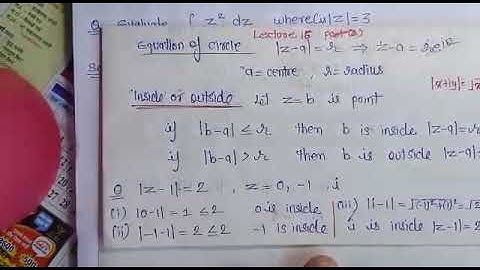 Q Evaluate ∫ z² dz where C is |z|=3
Lecture 15 part (2)
Equation of circle |z-a|=r ⇒ z-a = re^iθ
a=centre, r=radius
|x+iy|=√
Inside or outside Let z=b is point
if |b-a| ≤ r then b is inside |z-a|=r
if |b-a| > r then b is outside |z-a|=
Q |z-1|=2, z=0, -1, i
(i) |0-1|=1 ≤2 0 is inside (iii) |i-1|=√(-1)²+(1)²=√2
(ii) |-1-1|=2 ≤2 -1 is inside i is inside |z-1|=2